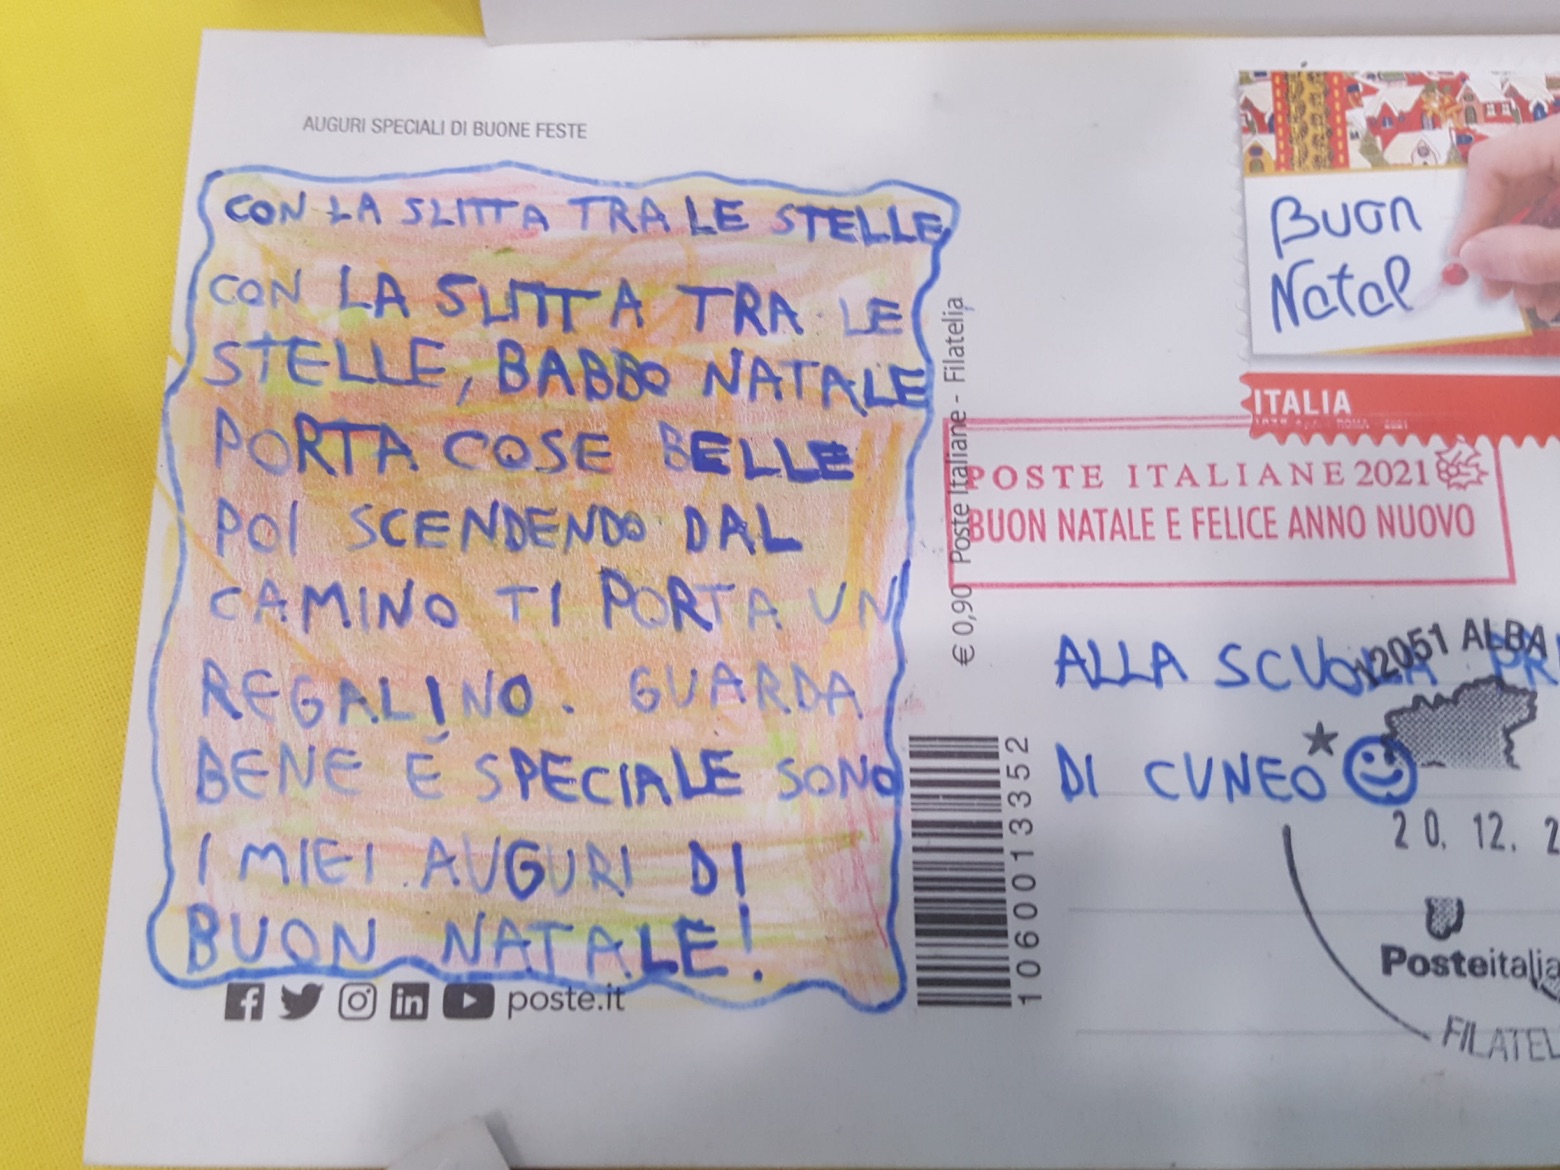 AUGURI SPECIALI DI BUONE FESTE
CON LA SLITTA TRA LE STELLE
CON LA SLITTA TRA LE
STELLE, BABBO NATALE
PORTA COSE BELLE
POI SCENDENDO DAL
CAMINO TI PORTA UN
REGALINO. GUARDA
BENE È SPECIALE SONO
I MIEI AUGURI DI
BUON NATALE!
poste.it
€ 0,90 Poste Italiane - Filatelia
1060013352
Buon
Natal
ITALIA
POSTE ITALIANE 2021
BUON NATALE E FELICE ANNO NUOVO
ALLA SCUOLA PRI
DI CUNEO
12051 ALBA
20. 12. 2
Posteitalia
FILATEL